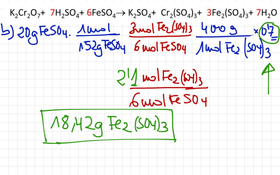 K₂Cr₂O₇ + 7H₂SO₄ + 6FeSO₄ → K₂SO₄ + Cr₂(SO₄)₃ + 3Fe₂(SO₄)₃ + 7H₂O
b) 20gFeSO₄ · 1mol / 152gFeSO₄ · 3mol Fe₂(SO₄)₃ / 6molFeSO₄ · 400g / 1mol Fe₂(SO₄)₃ × 0'7
2'1 mol Fe₂(SO₄)₃ / 6molFeSO₄
18,42g Fe₂(SO₄)₃